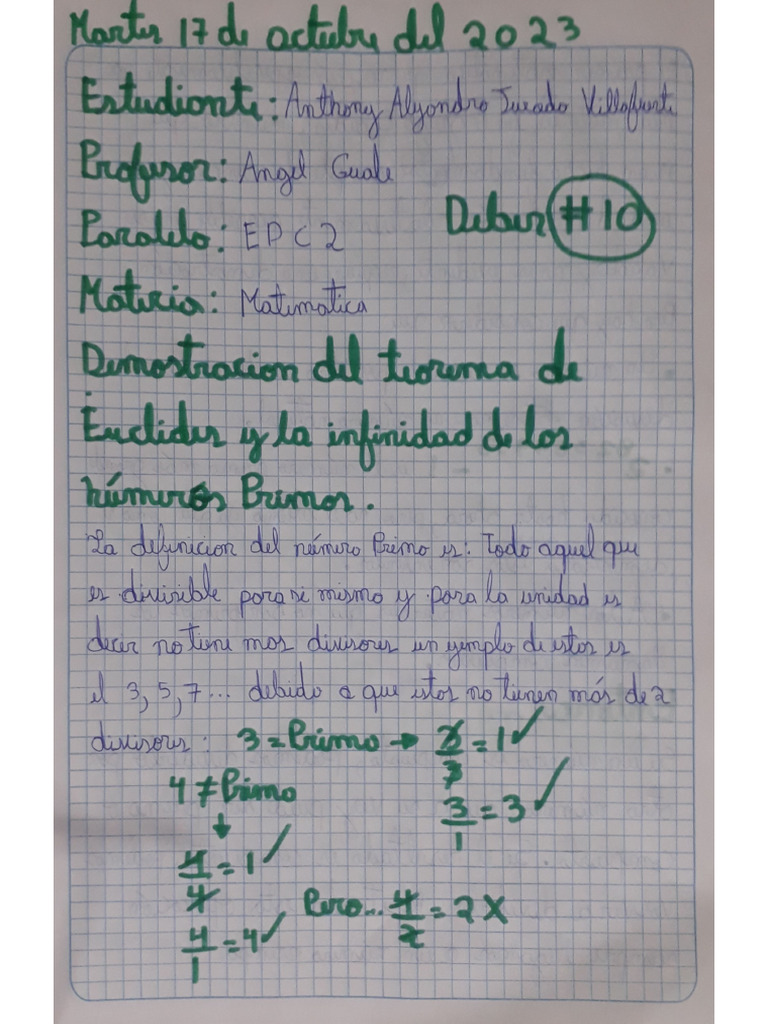 Martes 17 de octubre del 2023
Estudiante: Anthony Alejandro Jurado Villafuerte
Profesor: Angel Guale
Paralelo: EPC2
Deber #10
Materia: Matematica
Demostracion del teorema de
Euclides y la infinidad de los
números Primos.
La definicion del número Primo es: Todo aquel que
es divisible para si mismo y para la unidad es
decir no tiene mas divisores un ejemplo de estos es
el 3, 5, 7... debido a que estos no tienen más de 2
divisores: 3 = Primo → 3/3 = 1 ✓
4 ≠ Primo
3/1 = 3 ✓
↓
4/4 = 1 ✓
Pero... 4/2 = 2 X
4/1 = 4 ✓